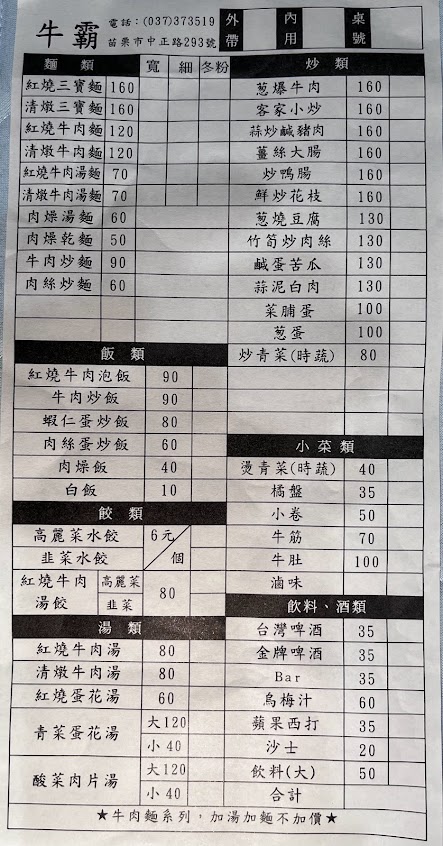 牛霸
電話：(037)373519
苗栗市中正路293號
外帶 內用 桌號
麵類 寬 細 冬粉
紅燒三寶麵 160
清燉三寶麵 160
紅燒牛肉麵 120
清燉牛肉麵 120
紅燒牛肉湯麵 70
清燉牛肉湯麵 70
肉燥湯麵 60
肉燥乾麵 50
牛肉炒麵 90
肉絲炒麵 60
飯類
紅燒牛肉泡飯 90
牛肉炒飯 90
蝦仁蛋炒飯 80
肉絲蛋炒飯 60
肉燥飯 40
白飯 10
餃類
高麗菜水餃 6元/個
韭菜水餃
紅燒牛肉湯餃 高麗菜 韭菜 80
湯類
紅燒牛肉湯 80
清燉牛肉湯 80
紅燒蛋花湯 60
青菜蛋花湯 大120
小40
酸菜肉片湯 大120
小40
炒類
蔥爆牛肉 160
客家小炒 160
蒜炒鹹豬肉 160
薑絲大腸 160
炒鴨腸 160
鮮炒花枝 160
蔥燒豆腐 130
竹筍炒肉絲 130
鹹蛋苦瓜 130
蒜泥白肉 130
菜脯蛋 100
蔥蛋 100
炒青菜(時蔬) 80
小菜類
燙青菜(時蔬) 40
橘盤 35
小卷 50
牛筋 70
牛肚 100
滷味
飲料、酒類
台灣啤酒 35
金牌啤酒 35
Bar 35
烏梅汁 60
蘋果西打 35
沙士 20
飲料(大) 50
合計
★牛肉麵系列，加湯加麵不加價★